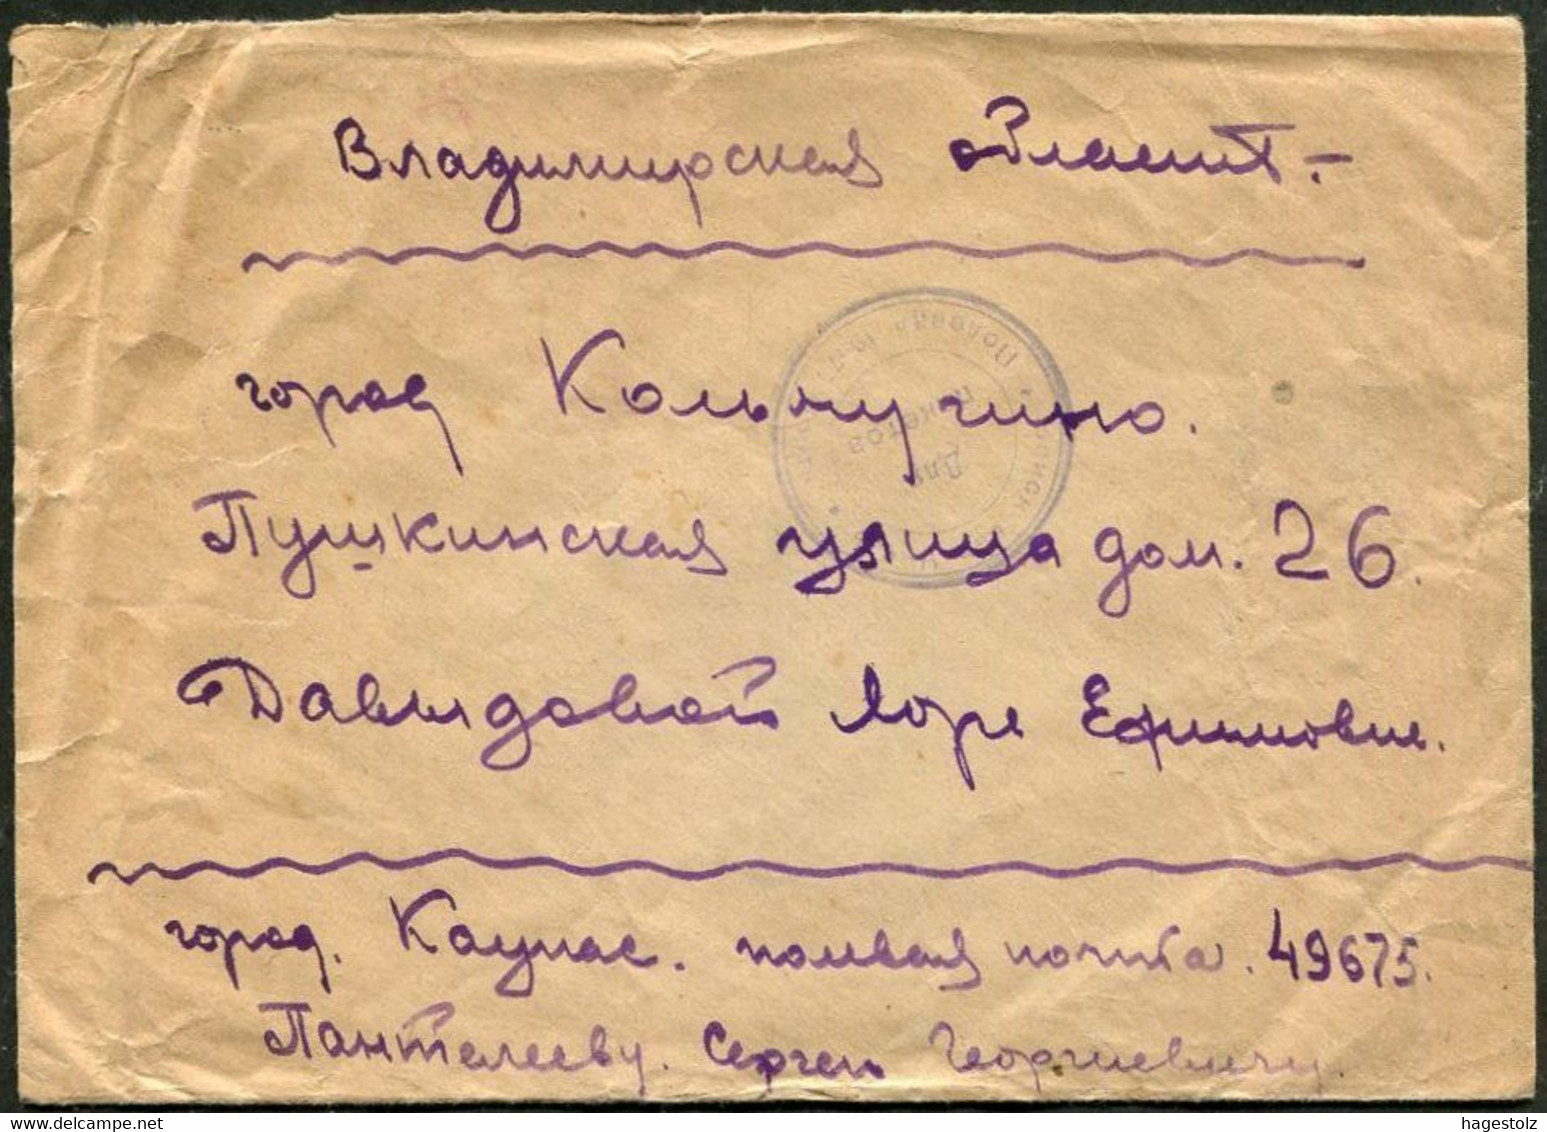 Владимирская область.-
город Кольчугино.
Пушкинская улица дом. 26.
Давыдовой Лоре Ефимовне.
город. Каунас. полевая почта. 49675.
Пантелееву. Сергею Георгиевичу.
Полевая почта
Для
пакетов
hagestolz